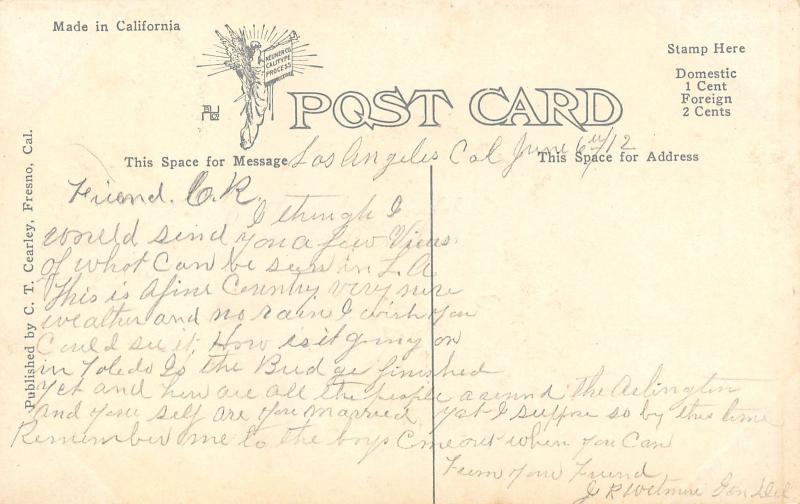 Made in California
NEUNER CO.
CALITYPE
PROCESS
POST CARD
Stamp Here
Domestic
1 Cent
Foreign
2 Cents
This Space for Message
This Space for Address
Published by C. T. Cearley, Fresno, Cal.
Los Angeles Cal June 6th/12
Friend. C. R.
I though I
would send you a few Views
of what can be seen in L.A
This is a fine Country very nice
weather and no rain I wish you
Could see it. How is it going on
in Toledo Is the Budge finished
yet and how are all the people around The Arlington
and your self are you married yet I suppose so by this time
Remember me to the boys Come out when you Can
From your Friend
J R Wetmore